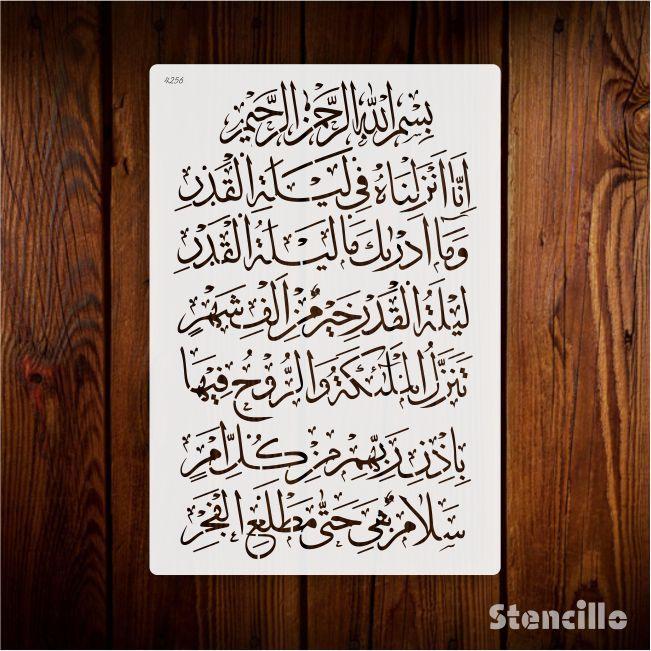 4256
بسم الله الرحمن الرحيم
إنا أنزلناه في ليلة القدر
وما ادريك ما ليلة القدر
ليلة القدر خير من الف شهر
تنزل الملئكة والروح فيها
باذن ربهم من كل امر
سلام هي حتى مطلع الفجر
Stencillo